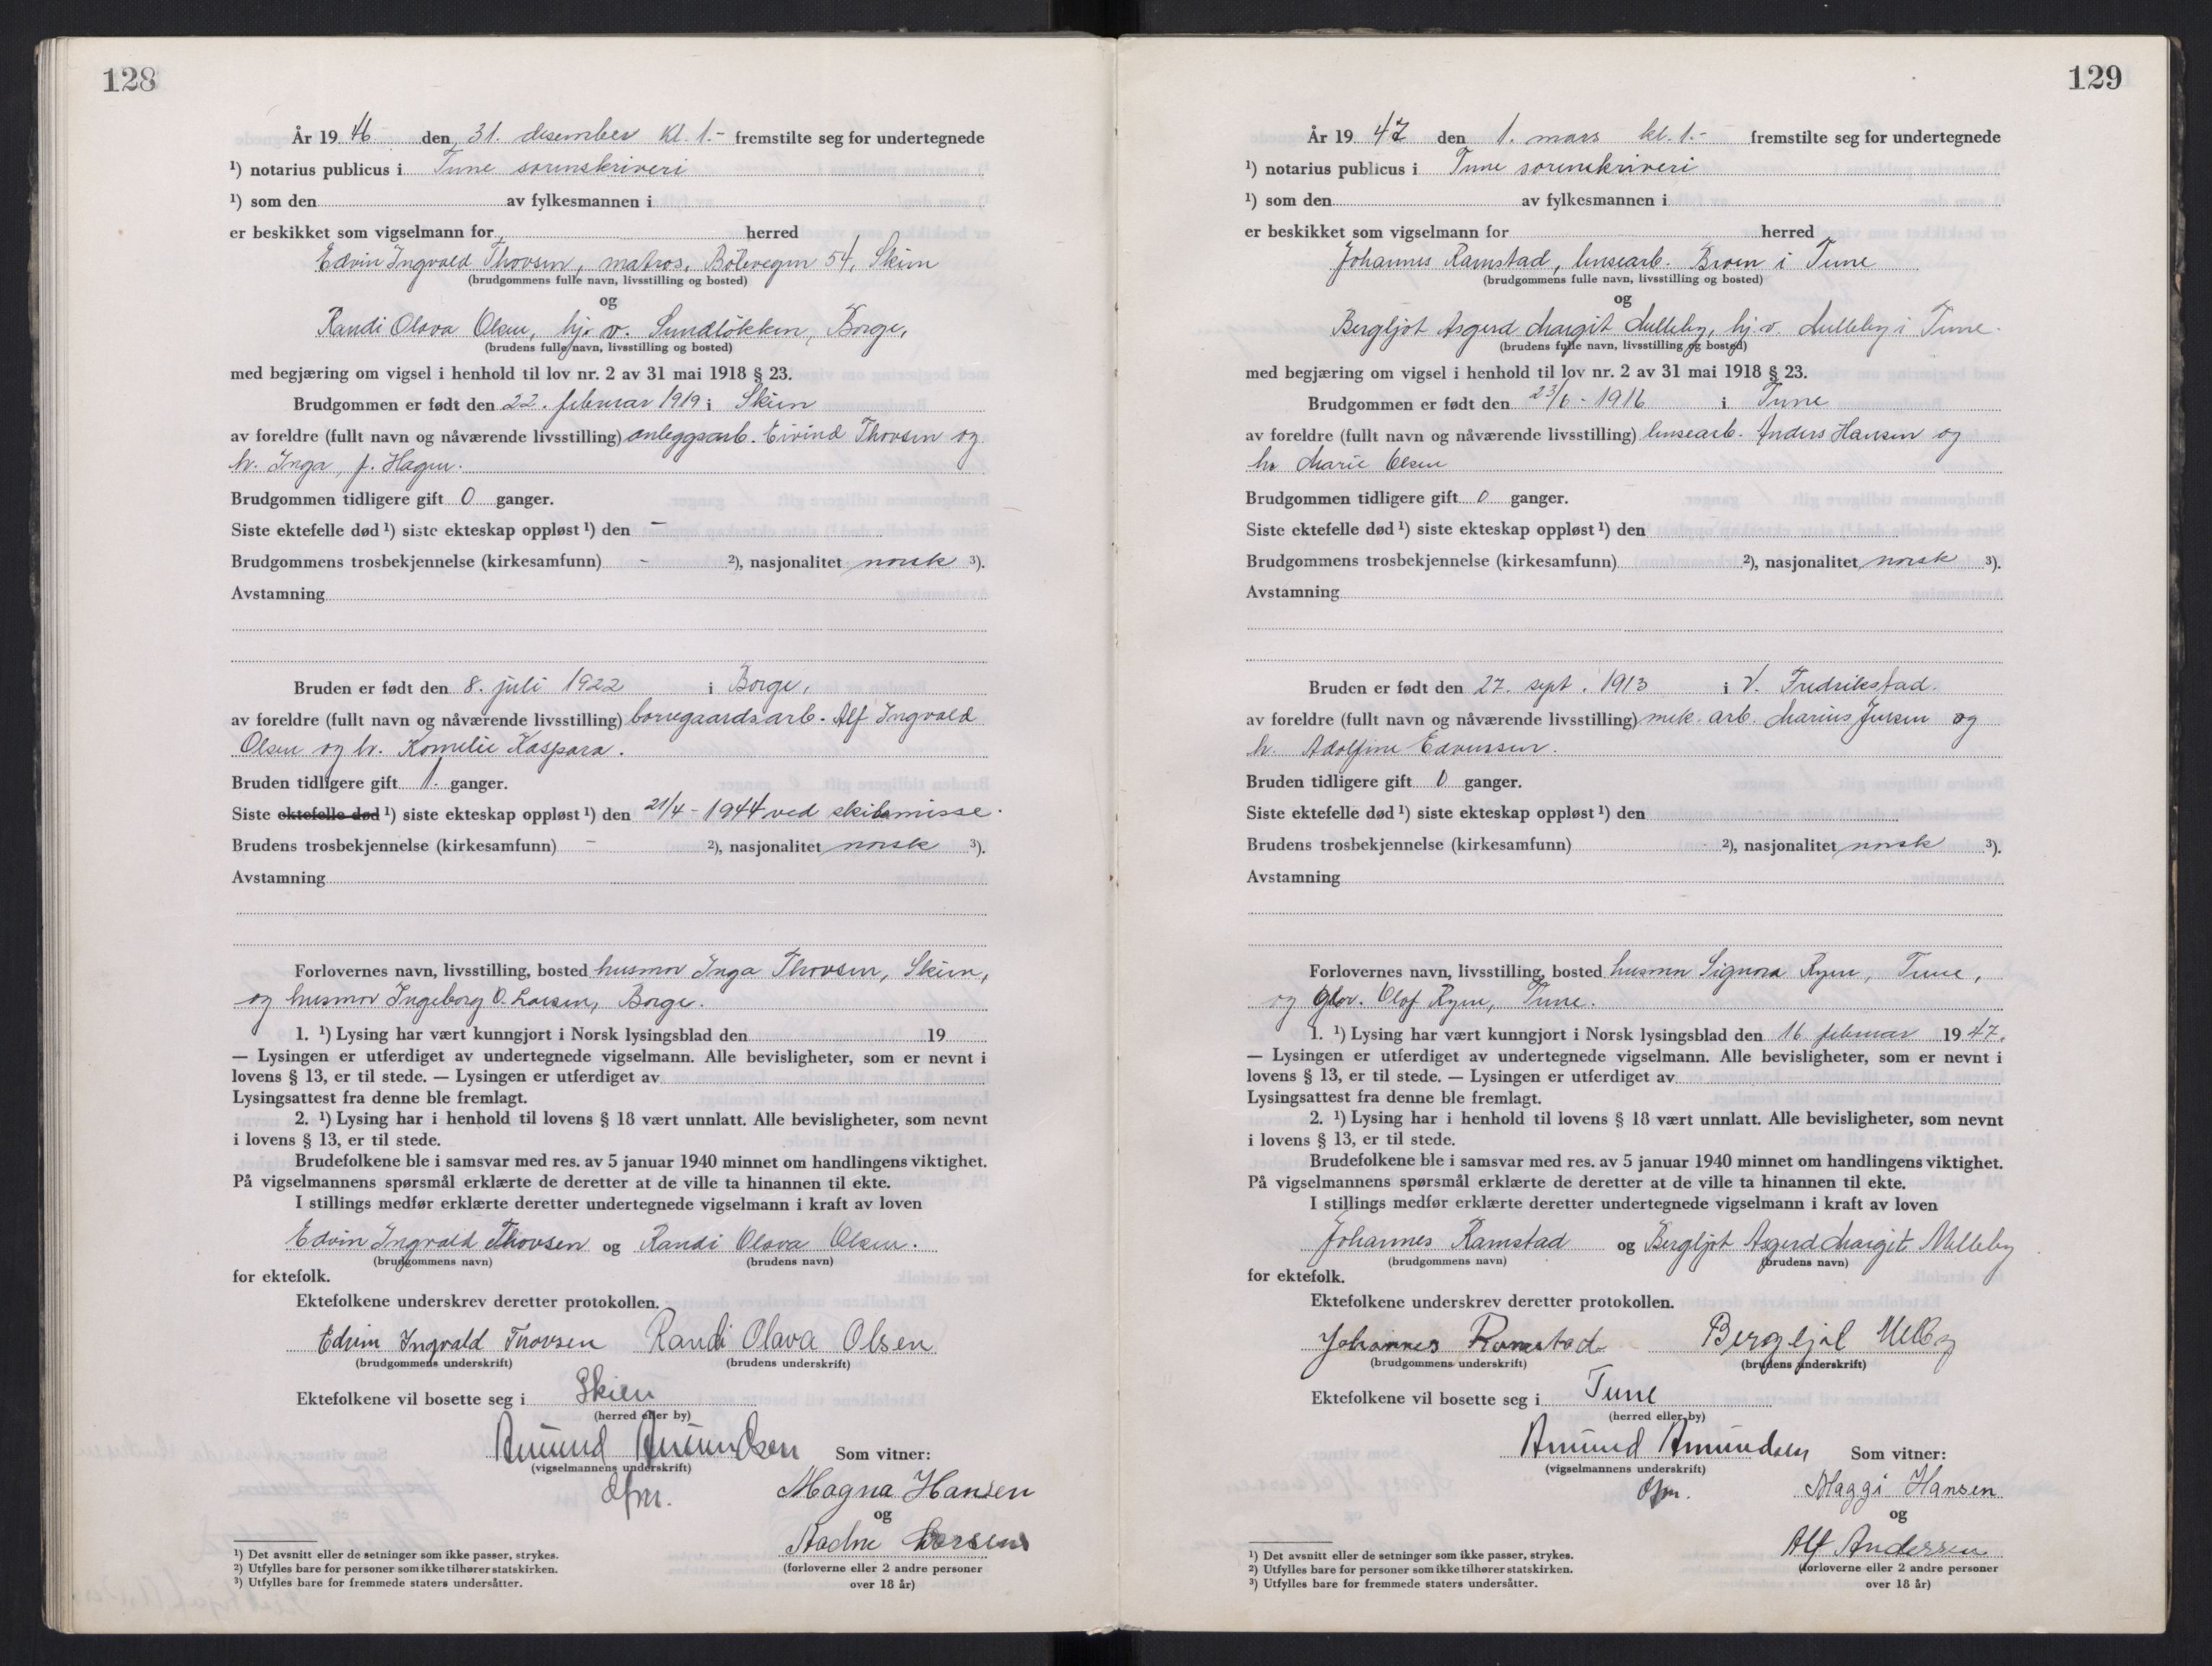 128
År 19 46 den 31. desember kl. 1.- fremstilte seg for undertegnede
¹) notarius publicus i Tune sorenskriveri
¹) som den av fylkesmannen i
er beskikket som vigselmann for herred
Edvin Ingvald Thovsen, matros, Bölevegen 54, Skien
(brudgommens fulle navn, livsstilling og bosted)
og
Randi Olava Olsen, hj. v. Sundlökken, Borge,
(brudens fulle navn, livsstilling og bosted)
med begjæring om vigsel i henhold til lov nr. 2 av 31 mai 1918 § 23.
Brudgommen er født den 22. februar 1919 i Skien
av foreldre (fullt navn og nåværende livsstilling) anleggsarb. Eivind Thovsen og
h. Inga, f. Hagen.
Brudgommen tidligere gift 0 ganger.
Siste ektefelle død ¹) siste ekteskap oppløst ¹) den -
Brudgommens trosbekjennelse (kirkesamfunn) - ²), nasjonalitet norsk ³).
Avstamning
Bruden er født den 8. juli 1922 i Borge,
av foreldre (fullt navn og nåværende livsstilling) borregaardsarb. Alf Ingvald
Olsen og h. Kornelie Kaspara.
Bruden tidligere gift 1. ganger.
Siste ektefelle død ¹) siste ekteskap oppløst ¹) den 21/4 - 1944 ved skilsmisse.
Brudens trosbekjennelse (kirkesamfunn) - ²), nasjonalitet norsk ³).
Avstamning
Forlovernes navn, livsstilling, bosted husmor Inga Thovsen, Skien,
og husmor Ingeborg O. Larsen, Borge.
1. ¹) Lysing har vært kunngjort i Norsk lysingsblad den 19
— Lysingen er utferdiget av undertegnede vigselmann. Alle bevisligheter, som er nevnt i
lovens § 13, er til stede. — Lysingen er utferdiget av
Lysingsattest fra denne ble fremlagt.
2. ¹) Lysing har i henhold til lovens § 18 vært unnlatt. Alle bevisligheter, som nevnt
i lovens § 13, er til stede.
Brudefolkene ble i samsvar med res. av 5 januar 1940 minnet om handlingens viktighet.
På vigselmannens spørsmål erklærte de deretter at de ville ta hinannen til ekte.
I stillings medfør erklærte deretter undertegnede vigselmann i kraft av loven
Edvin Ingvald Thovsen og Randi Olava Olsen.
(brudgommens navn) (brudens navn)
for ektefolk.
Ektefolkene underskrev deretter protokollen.
Edvin Ingvald Thovsen Randi Olava Olsen
(brudgommens underskrift) (brudens underskrift)
Ektefolkene vil bosette seg i Skien
(herred eller by)
Amund Amundsen Som vitner:
(vigselmannens underskrift)
Magna Hansen
og
Larsen
(forloverne eller 2 andre personer
over 18 år)
¹) Det avsnitt eller de setninger som ikke passer, strykes.
²) Utfylles bare for personer som ikke tilhører statskirken.
³) Utfylles bare for fremmede staters undersåtter.
129
År 19 47 den 1. mars kl. 1.- fremstilte seg for undertegnede
¹) notarius publicus i Tune sorenskriveri
¹) som den av fylkesmannen i
er beskikket som vigselmann for herred
Johannes Ramstad, lensearb. Broen i Tune
(brudgommens fulle navn, livsstilling og bosted)
og
Bergljot Asgerd Margit Melleby, hj. v. Melleby i Tune.
(brudens fulle navn, livsstilling og bosted)
med begjæring om vigsel i henhold til lov nr. 2 av 31 mai 1918 § 23.
Brudgommen er født den 23/6 - 1916 i Tune
av foreldre (fullt navn og nåværende livsstilling) lensearb. Anders Hansen og
h. Marie Olsen
Brudgommen tidligere gift 0 ganger.
Siste ektefelle død ¹) siste ekteskap oppløst ¹) den
Brudgommens trosbekjennelse (kirkesamfunn) ²), nasjonalitet norsk ³).
Avstamning
Bruden er født den 27. sept. 1913 i V. Fredrikstad.
av foreldre (fullt navn og nåværende livsstilling) mek. arb. Marius Jensen og
h. Adolfine Edvardsen.
Bruden tidligere gift 0 ganger.
Siste ektefelle død ¹) siste ekteskap oppløst ¹) den
Brudens trosbekjennelse (kirkesamfunn) ²), nasjonalitet norsk ³).
Avstamning
Forlovernes navn, livsstilling, bosted husmor Signora Ryen, Tune,
og Olof Ryen, Tune.
1. ¹) Lysing har vært kunngjort i Norsk lysingsblad den 16 februar 19 47.
— Lysingen er utferdiget av undertegnede vigselmann. Alle bevisligheter, som er nevnt i
lovens § 13, er til stede. — Lysingen er utferdiget av
Lysingsattest fra denne ble fremlagt.
2. ¹) Lysing har i henhold til lovens § 18 vært unnlatt. Alle bevisligheter, som nevnt
i lovens § 13, er til stede.
Brudefolkene ble i samsvar med res. av 5 januar 1940 minnet om handlingens viktighet.
På vigselmannens spørsmål erklærte de deretter at de ville ta hinannen til ekte.
I stillings medfør erklærte deretter undertegnede vigselmann i kraft av loven
Johannes Ramstad og Bergljot Asgerd Margit Melleby
(brudgommens navn) (brudens navn)
for ektefolk.
Ektefolkene underskrev deretter protokollen.
Johannes Ramstad Bergljot
(brudgommens underskrift) (brudens underskrift)
Ektefolkene vil bosette seg i Tune
(herred eller by)
Amund Amundsen Som vitner:
(vigselmannens underskrift)
Maggi Hansen
og
Alf Andersen
(forloverne eller 2 andre personer
over 18 år)
¹) Det avsnitt eller de setninger som ikke passer, strykes.
²) Utfylles bare for personer som ikke tilhører statskirken.
³) Utfylles bare for fremmede staters undersåtter.